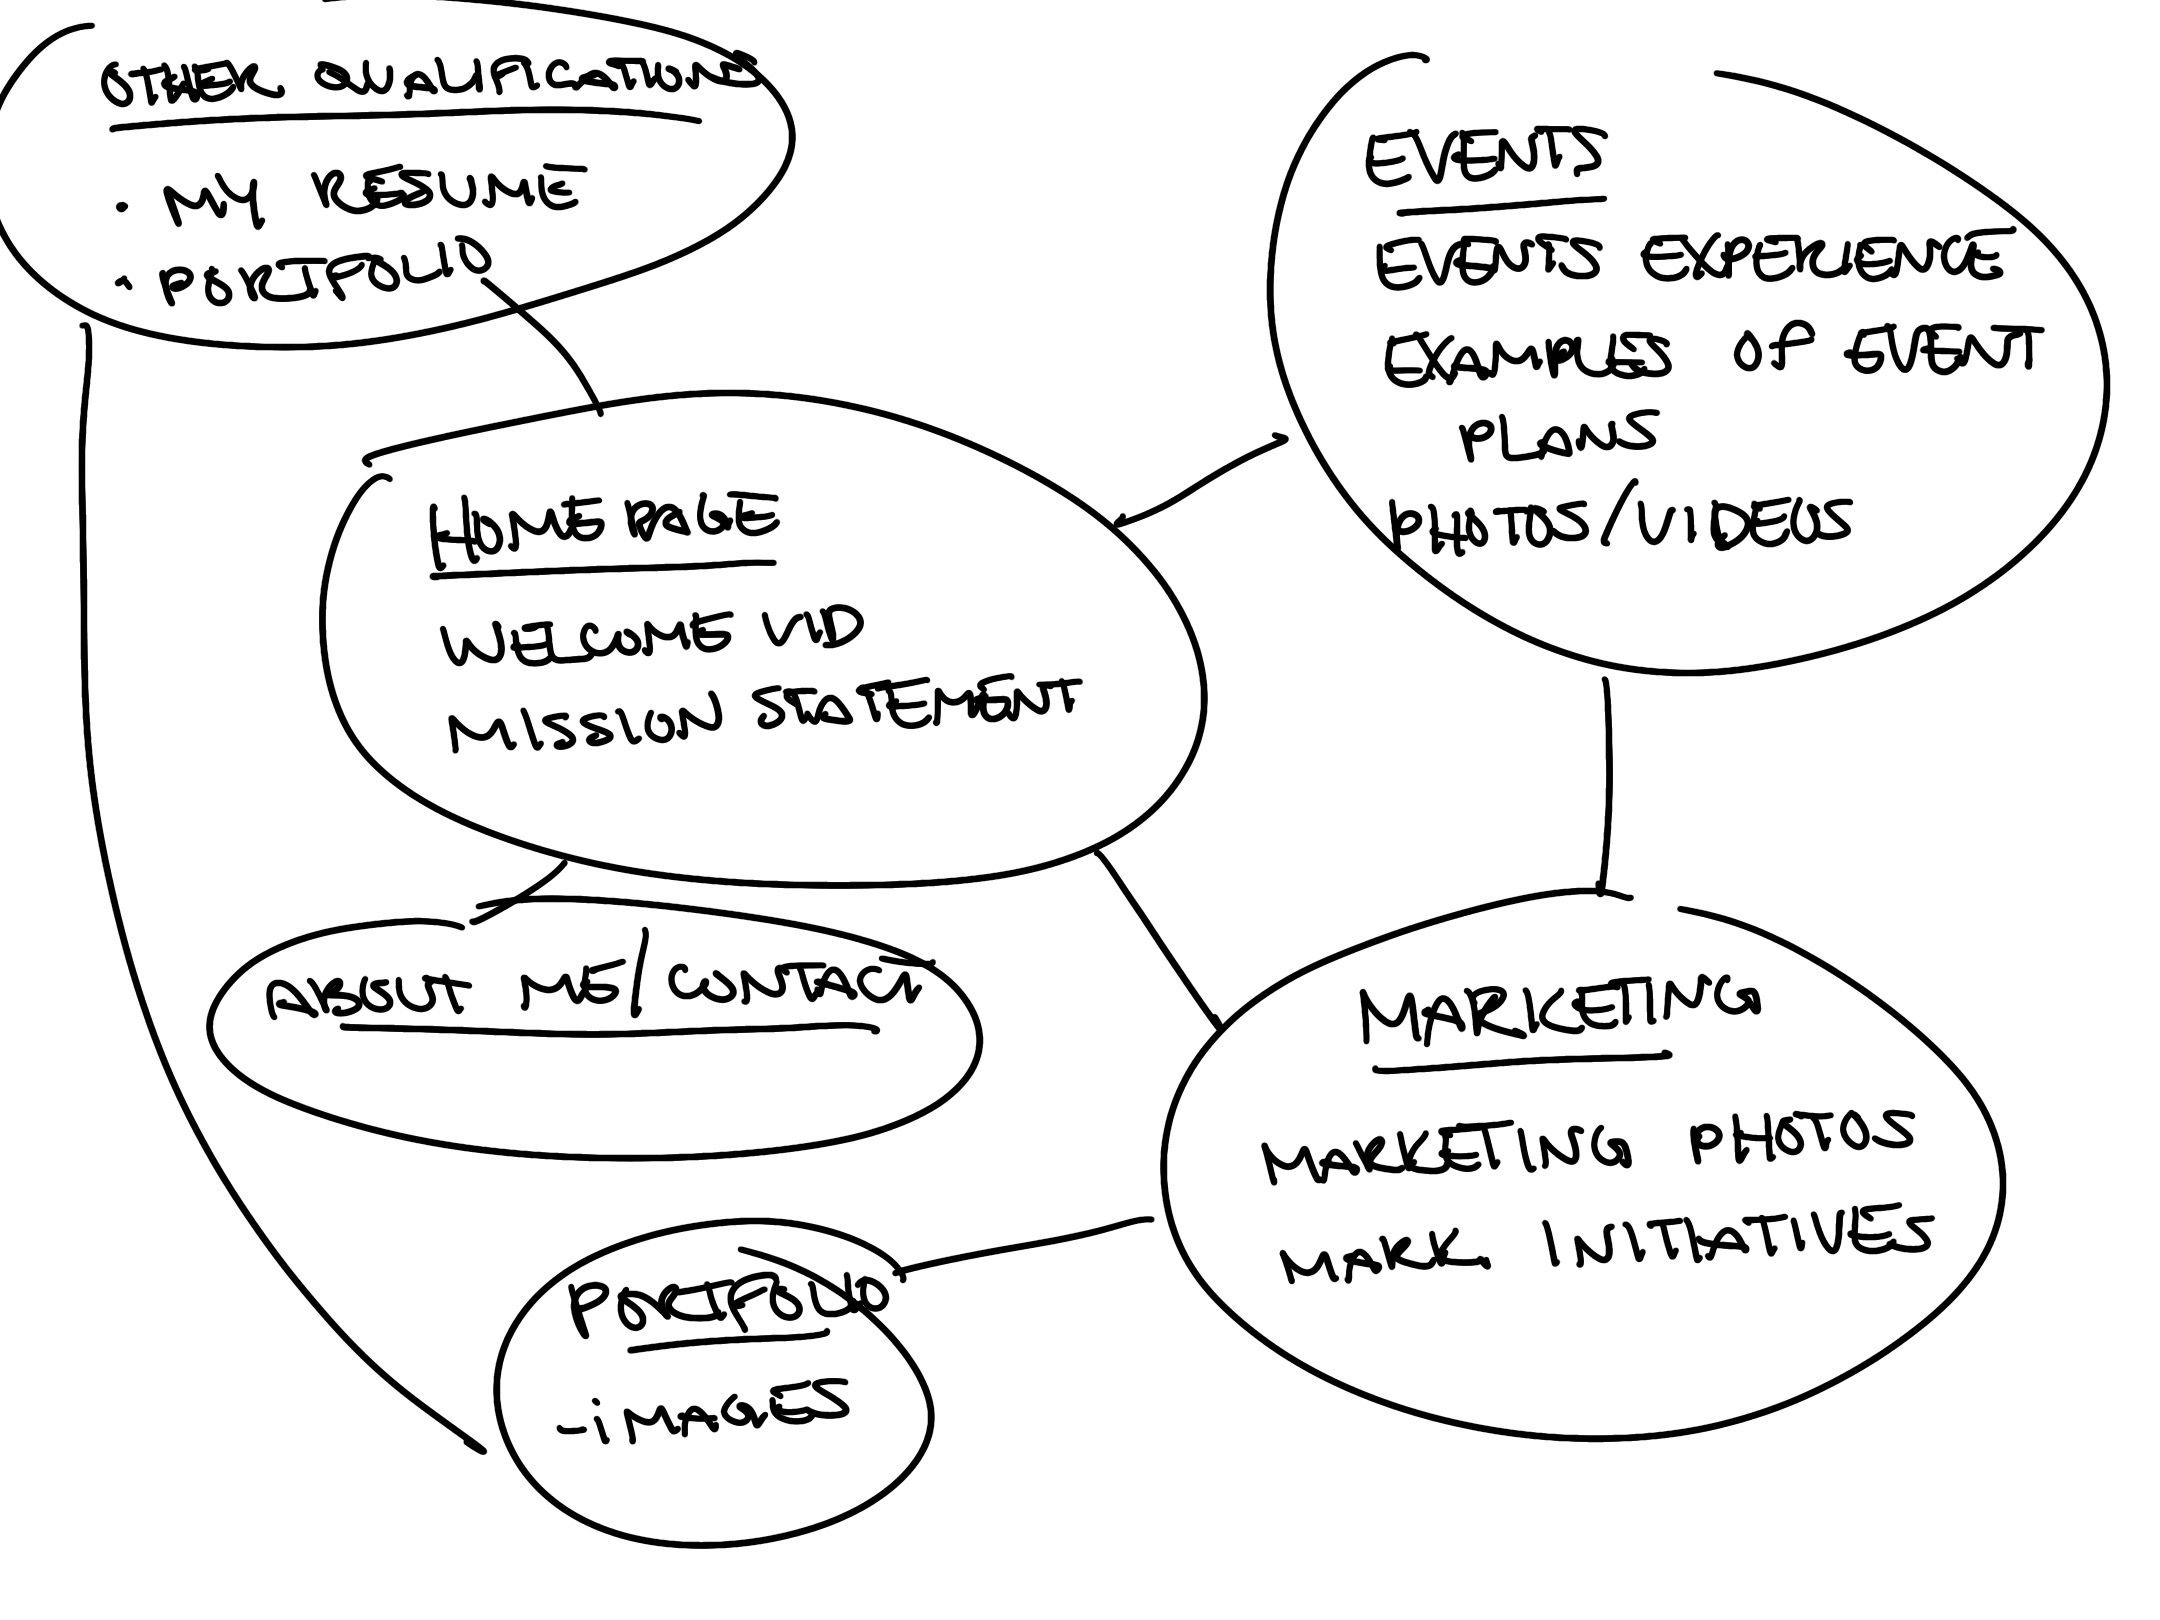 OTHER QUALIFICATIONS
· MY RESUME
· PORTFOLIO
EVENTS
EVENTS EXPERIENCE
EXAMPLES OF EVENT
PLANS
PHOTOS/VIDEOS
HOME PAGE
WELCOME VID
MISSION STATEMENT
ABOUT ME/CONTACT
MARKETING
MARKETING PHOTOS
MARK. INITIATIVES
PORTFOLIO
-iMAGES